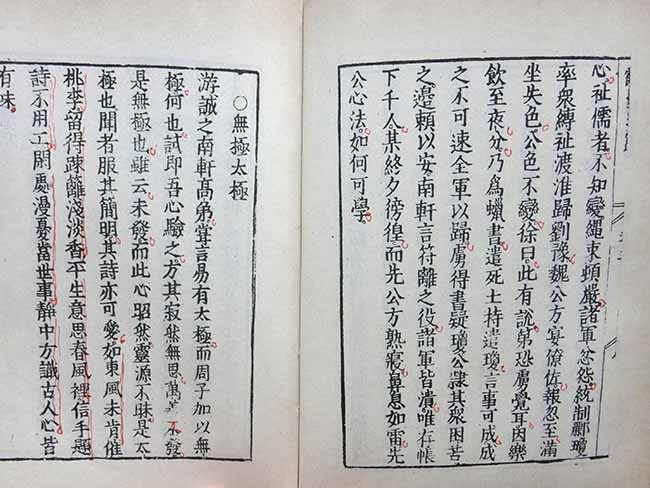 心祉儒者不知變繩束頓嚴諸軍忿怨統制酈瓊
率衆縛祉渡淮歸劉豫魏公方宴僚佐報忽至滿
坐失色公色不變徐曰此有說第恐虜覺耳因樂
飲至夜分乃爲蠟書遣死士持遺瓊言事可成成
之不可速全軍以歸虜得書疑瓊公隷其衆困苦
之邊賴以安南軒言符離之役諸軍皆潰唯存帳
下千人某終夕傍徨而先公方熟寢鼻息如雷先
公心法如何可學
○無極太極
游誠之南軒高弟嘗言易有太極而周子加以無
極何也試即吾心驗之方其寂然無思萬善未發
是無極也雖云未發而此心昭然靈源不昧是太
極也聞者服其簡明其詩亦可愛如東風未肯催
桃李留得疎籬淺淡香平生意思春風裡信手題
詩不用工閑處漫憂當世事靜中方識古人心皆
有味